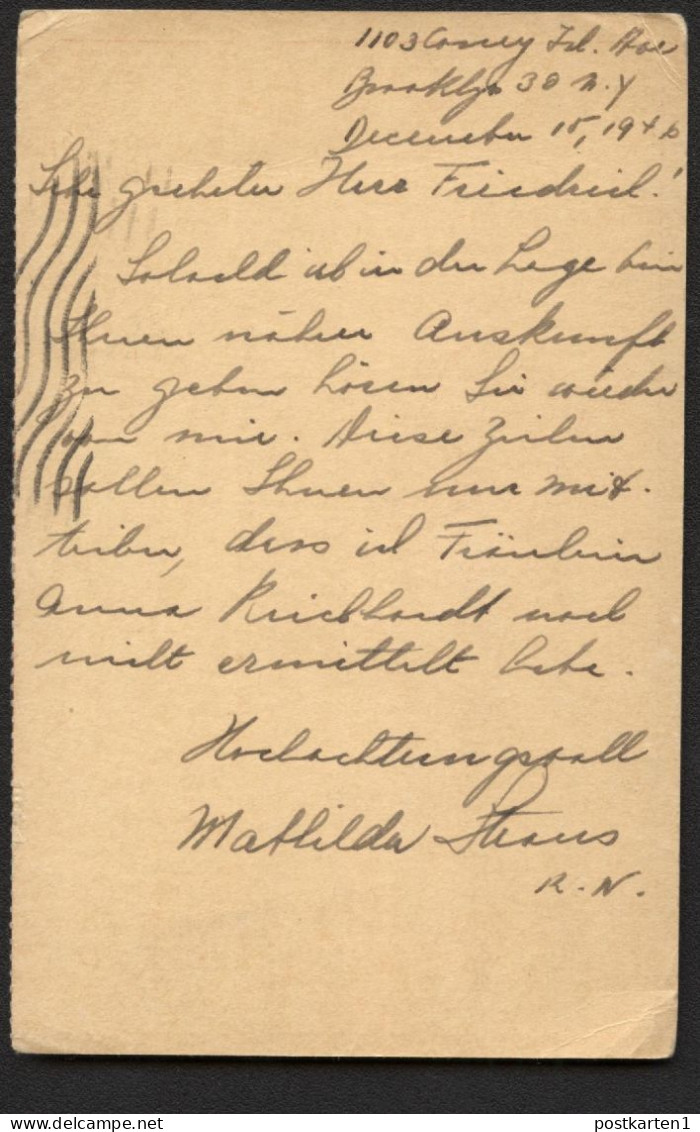 1103 Coney Isl. Ave
Brooklyn 30 N.Y
December 15, 1946
Sehr geehrter Herr Friedrich!
Sobald ich in der Lage bin
Ihnen näher Auskunft
zu geben hören Sie wieder
von mir. Diese Zeilen
sollen Ihnen nur mit-
teilen, dass ich Fräulein
Anna noch
nicht ermittelt habe.
Hochachtungsvoll
Mathilda Straus
R.N.
postkarten1